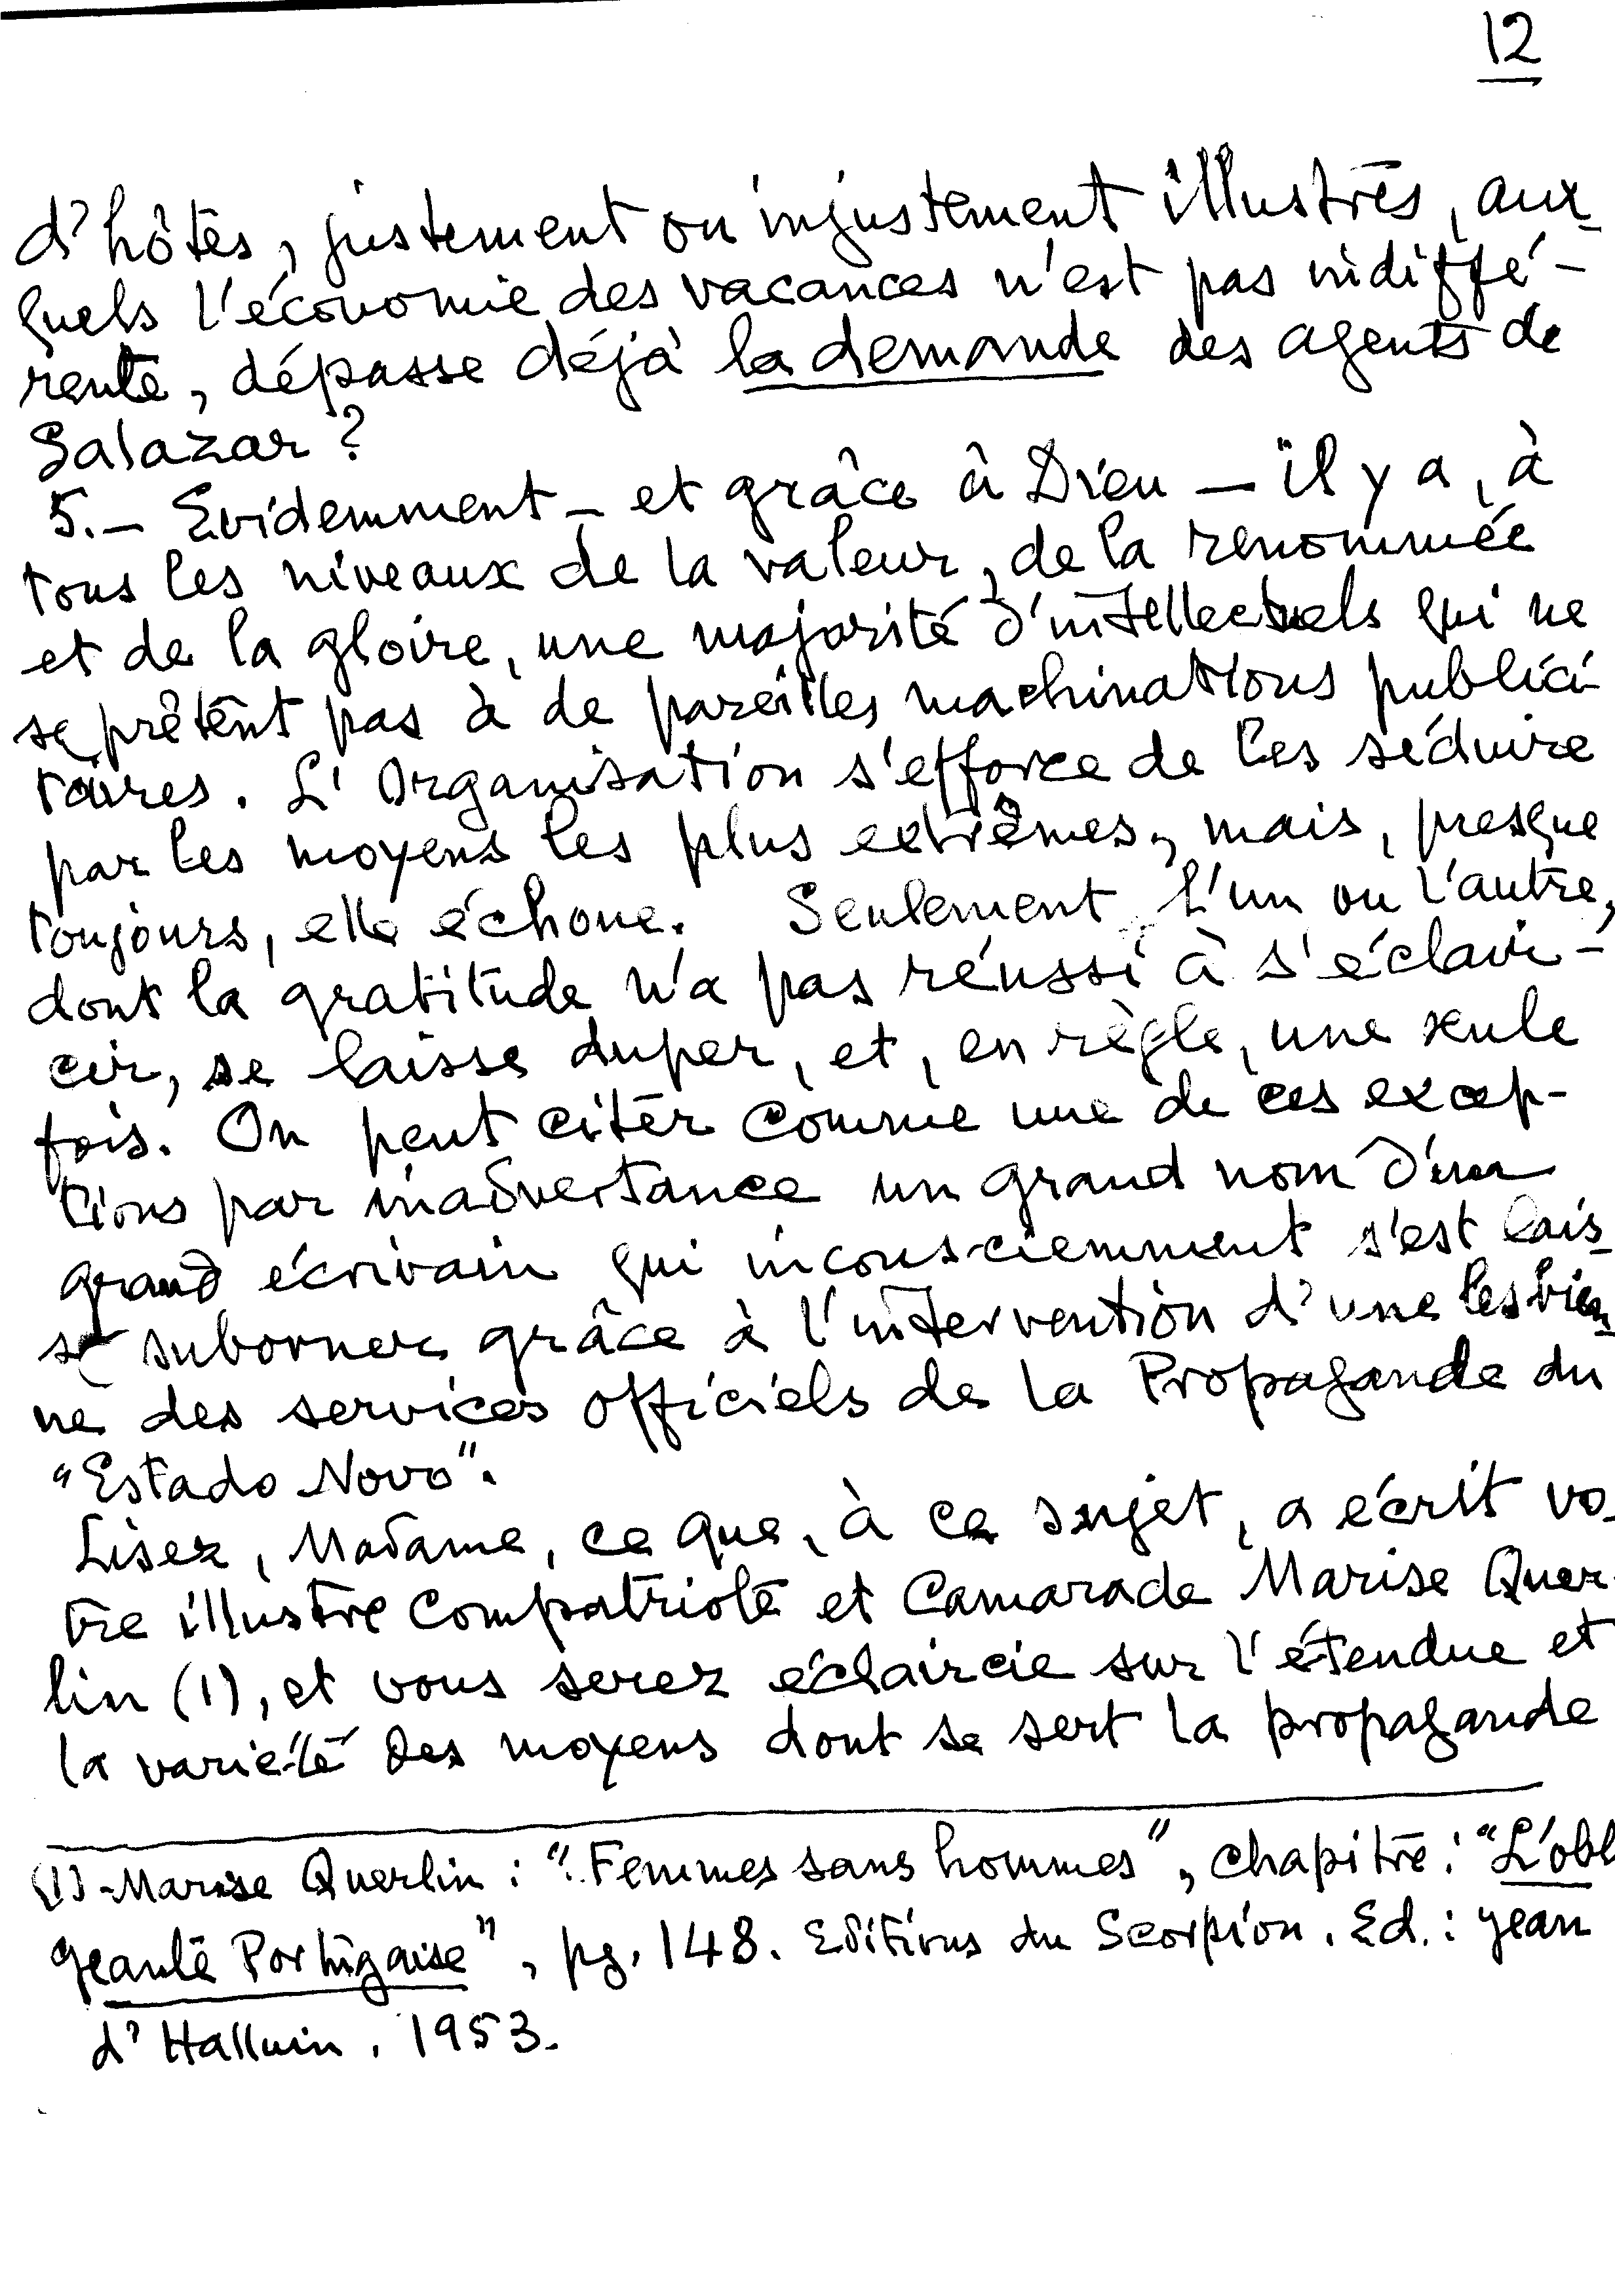 12
d'hôtes, justement ou injustement illustres, aux-
quels l'économie des vacances n'est pas indiffé-
rente, dépasse déjà la demande des agents de
Salazar ?
5.- Evidemment - et grâce à Dieu - il y a, à
tous les niveaux de la valeur, de la renommée
et de la gloire, une majorité d'intellectuels qui ne
se prêtent pas à de pareilles machinations publici-
taires. L'Organisation s'efforce de les séduire
par les moyens les plus extrêmes, mais, presque
toujours, elle échoue. Seulement l'un ou l'autre,
dont la gratitude n'a pas réussi à s'éclair-
cir, se laisse duper, et, en règle, une seule
fois. On peut citer comme une de ces excep-
tions par inadvertance un grand nom d'un
grand écrivain qui inconsciemment s'est lais-
sé suborner grâce à l'intervention d'une lesbien-
ne des services officiels de la Propagande du
"Estado Novo".
Lisez, Madame, ce que, à ce sujet, a écrit vo-
tre illustre compatriote et Camarade Marise Quer-
lin (1), et vous serez éclaircie sur l'étendue et
la variété des moyens dont se sert la propagande
(1)-Marise Querlin : "Femmes sans hommes", chapitre : "L'obl
geante Portugaise", pg. 148. Editions du Scorpion. Ed. : Jean
d'Halluin. 1953.